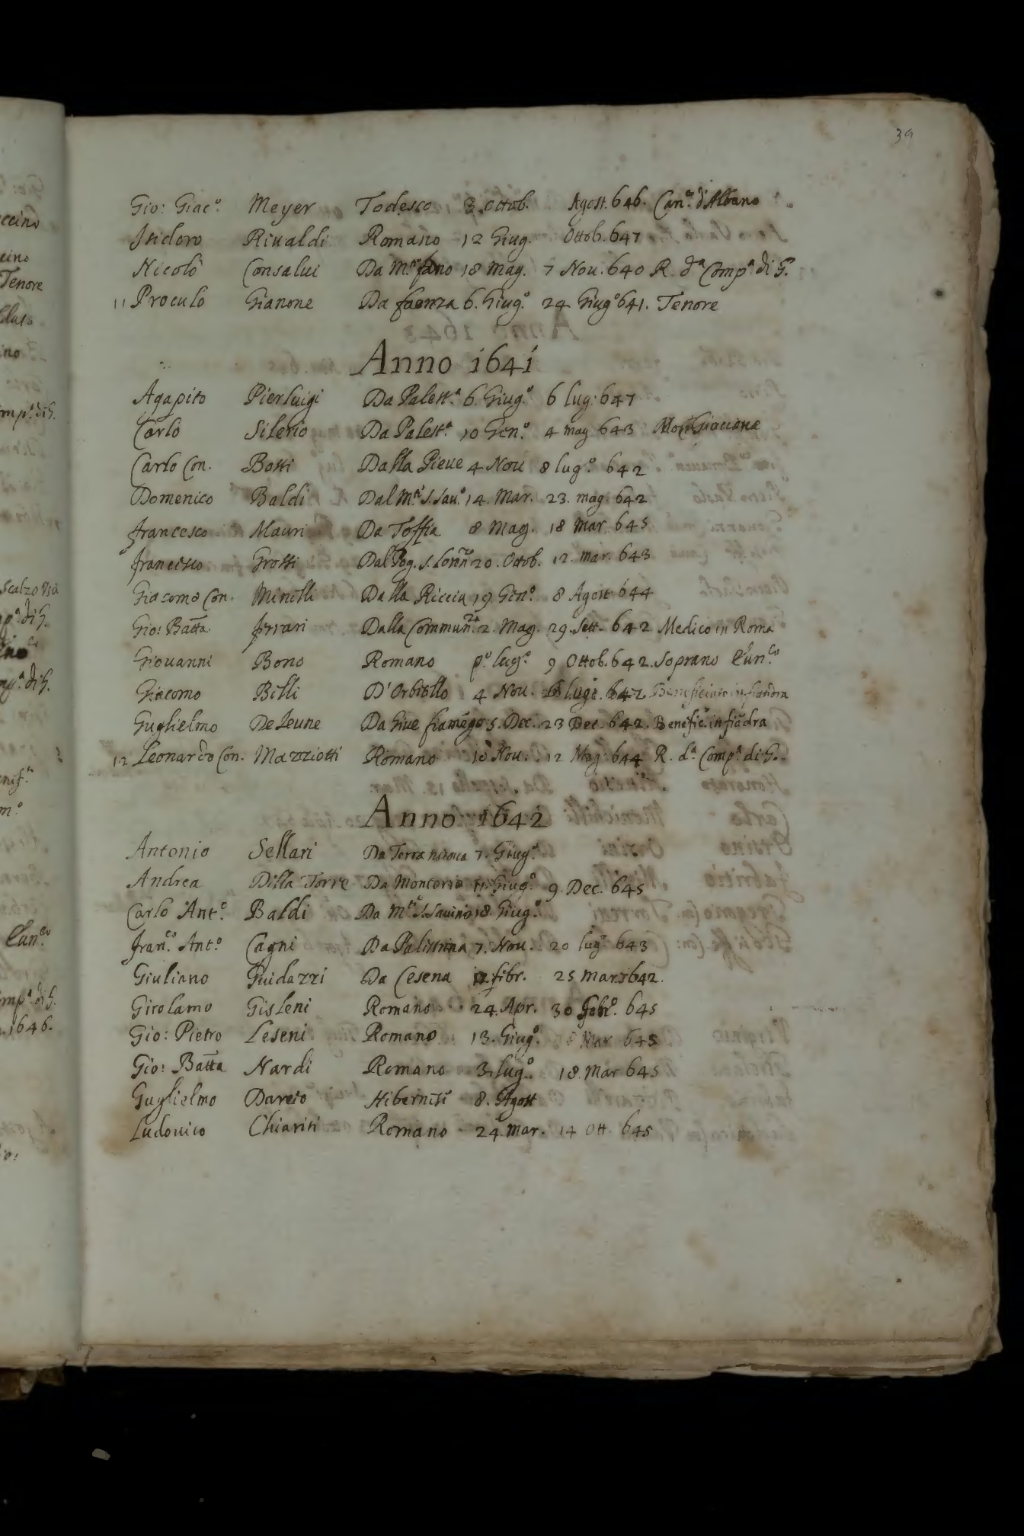 39
Gio: Giac.º Meyer Todesco 3. Ottob. Agost. 646. Can.co d'Albano
Isidoro Riualdi Romano 12 Giug. Ottob. 647
Nicolò Consalui Da M.te fano 18 Mag. 7 Nou. 640 R. d.a Comp.a di G.
11 Proculo Gianone Da faenza 6. Giug.º 24. Giug.º 641. Tenore
Anno 1641
Agapito Pierluigi Da Palest.a 6. Giug.º 6 lug. 647
Carlo Silerio Da Palest.a 10 Gen.º 4 mag 643
Carlo Con. Botti Dalla Pieue 4 Nou 8 lug.º 642
Domenico Baldi Dal M.te S. Sau.º 14. Mar. 23. mag. 642
francesco Mauri Da Toffia 8 Mag. 18 Mar. 645
francesco Grotti Dal Pog. S. Lor.zo 20. Ottob. 12. mar. 643
Giacomo Con. Minelli Dalla Riccia 19 Gen.º 8 Agost 644
Gio: Batta ferrari Dalla Commun.tà 2. Mag. 29. Sett. 642 Medico in Roma
Giouanni Bono Romano p.º lug.º 9 Ottob. 642. Soprano Eun.co
Giacomo Billi D'Orbiello 4 Nou. lug. 642 Beneficiato in fiandra
Guglielmo De Leune Da Giue fiamēgo 5. Dec. 23 Dec. 642. Benefic.to in fiādra
12 Leonardo Con. Mazziotti Romano 18 Nou. 12 Mag 644 R. d.a Comp.a di G.
Anno 1642
Antonio Sellari Da Terra nuoua 7. Giug.º
Andrea Della Torre Da Montorio Giug.º 9 Dec. 645
Carlo Ant.º Baldi Da M.te S. Sauino 18 Giug.º
fran.co Ant.º Cagni Da Palestrina 7. Nou. 20 lug.º 643
Giuliano Guidazzi Da Cesena febr. 25 marz 642.
Girolamo Gisleni Romano 24. Apr. 30 Feb.º 645
Gio: Pietro Leseni Romano 13. Giug.º Mar 645
Gio: Batta Nardi Romano 3. lug.º 18 Mar 645
Guglielmo Dareio Hibernese 8. Agost
Ludouico Chiariti Romano 24. mar. 14 Ott. 645